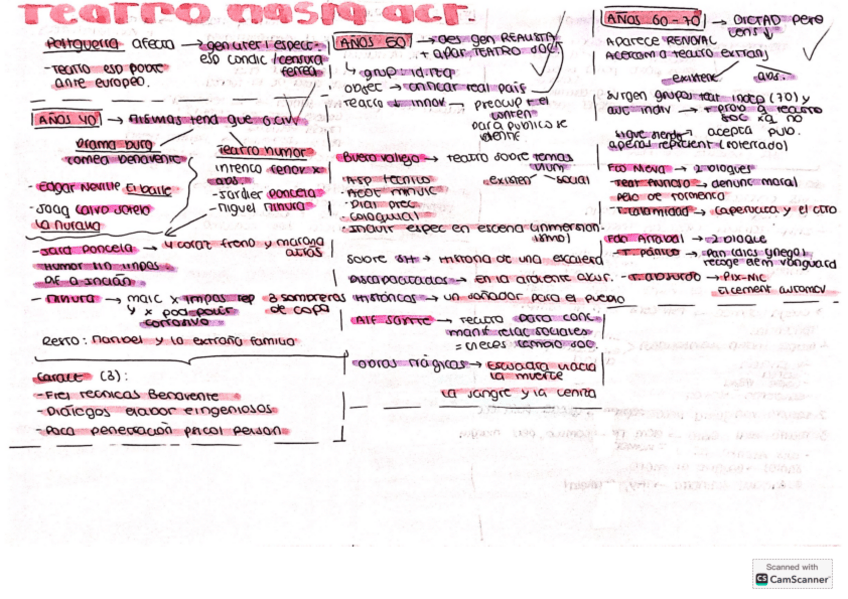 Teatro hasta act.
Postguerra afecta → gen liter i espect.
esp condic / censura
ferrea
- Teatro esp pobre
ante europeo.
AÑOS 40 →
drama burg
comed benavente
- Edgar Neville El baile
- Joaq Calvo Sotelo
La muralla
Teatro humor
intenco renov x
abs.
- Jardiel Poncela
- Miguel Mihura
- Jard Poncela → 4 coraz freno y marcha
atrás
Humor sin limpas
- Mihura → marc x impos rep 3 sombreros
y x pod
corrosivo de copa
Resto: Maribel y la extraña familia
Caract (3):
- Fiel técnicas Benavente
- Diálogos elabor e ingeniosos
- Poca penetración psicol person
AÑOS 50 → des gen REALISTA
+ apar TEATRO SOC.
objec → criticar real país
teatro ↓ innov → preocup + el
conten
para público se
Buero Vallejo → teatro sobre temas
hum
existen social
- Asp técnico
- Acot minuc
- Diál prec
- Coloquial
- Incluir espec en escena (inmersion
ismo)
Sobre SH → Historia de una escalera
Discapacitados → en la ardiente oscur.
Históricas → un soñador para el pueblo
Alf Sastre → teatro para conc
manif relac sociales
= neces cambio soc.
obras trágicas → Escuadra hacia
la muerte
La sangre y la ceniza
AÑOS 60-70 → DICTAD pero
cens ↓
APARECE RENOVAC
Acercam a teatro extranj
existenc abs.
Surgen grupos teat indep (70) y
aut indiv →
soc xq no
sigue siendo acepta pub.
apenas represent (soterrado)
Fco Nieva → 2 bloques
- Teat furioso → denunc moral
Pelo de tormenta
- T. calamidad → caperucita y el otro
Fdo Arrabal → 2 bloque
- T. pánico → Pan (dios griego)
recoge elem vanguard
- T. absurdo → Pic-Nic
El cement automov
Scanned with
CS CamScanner